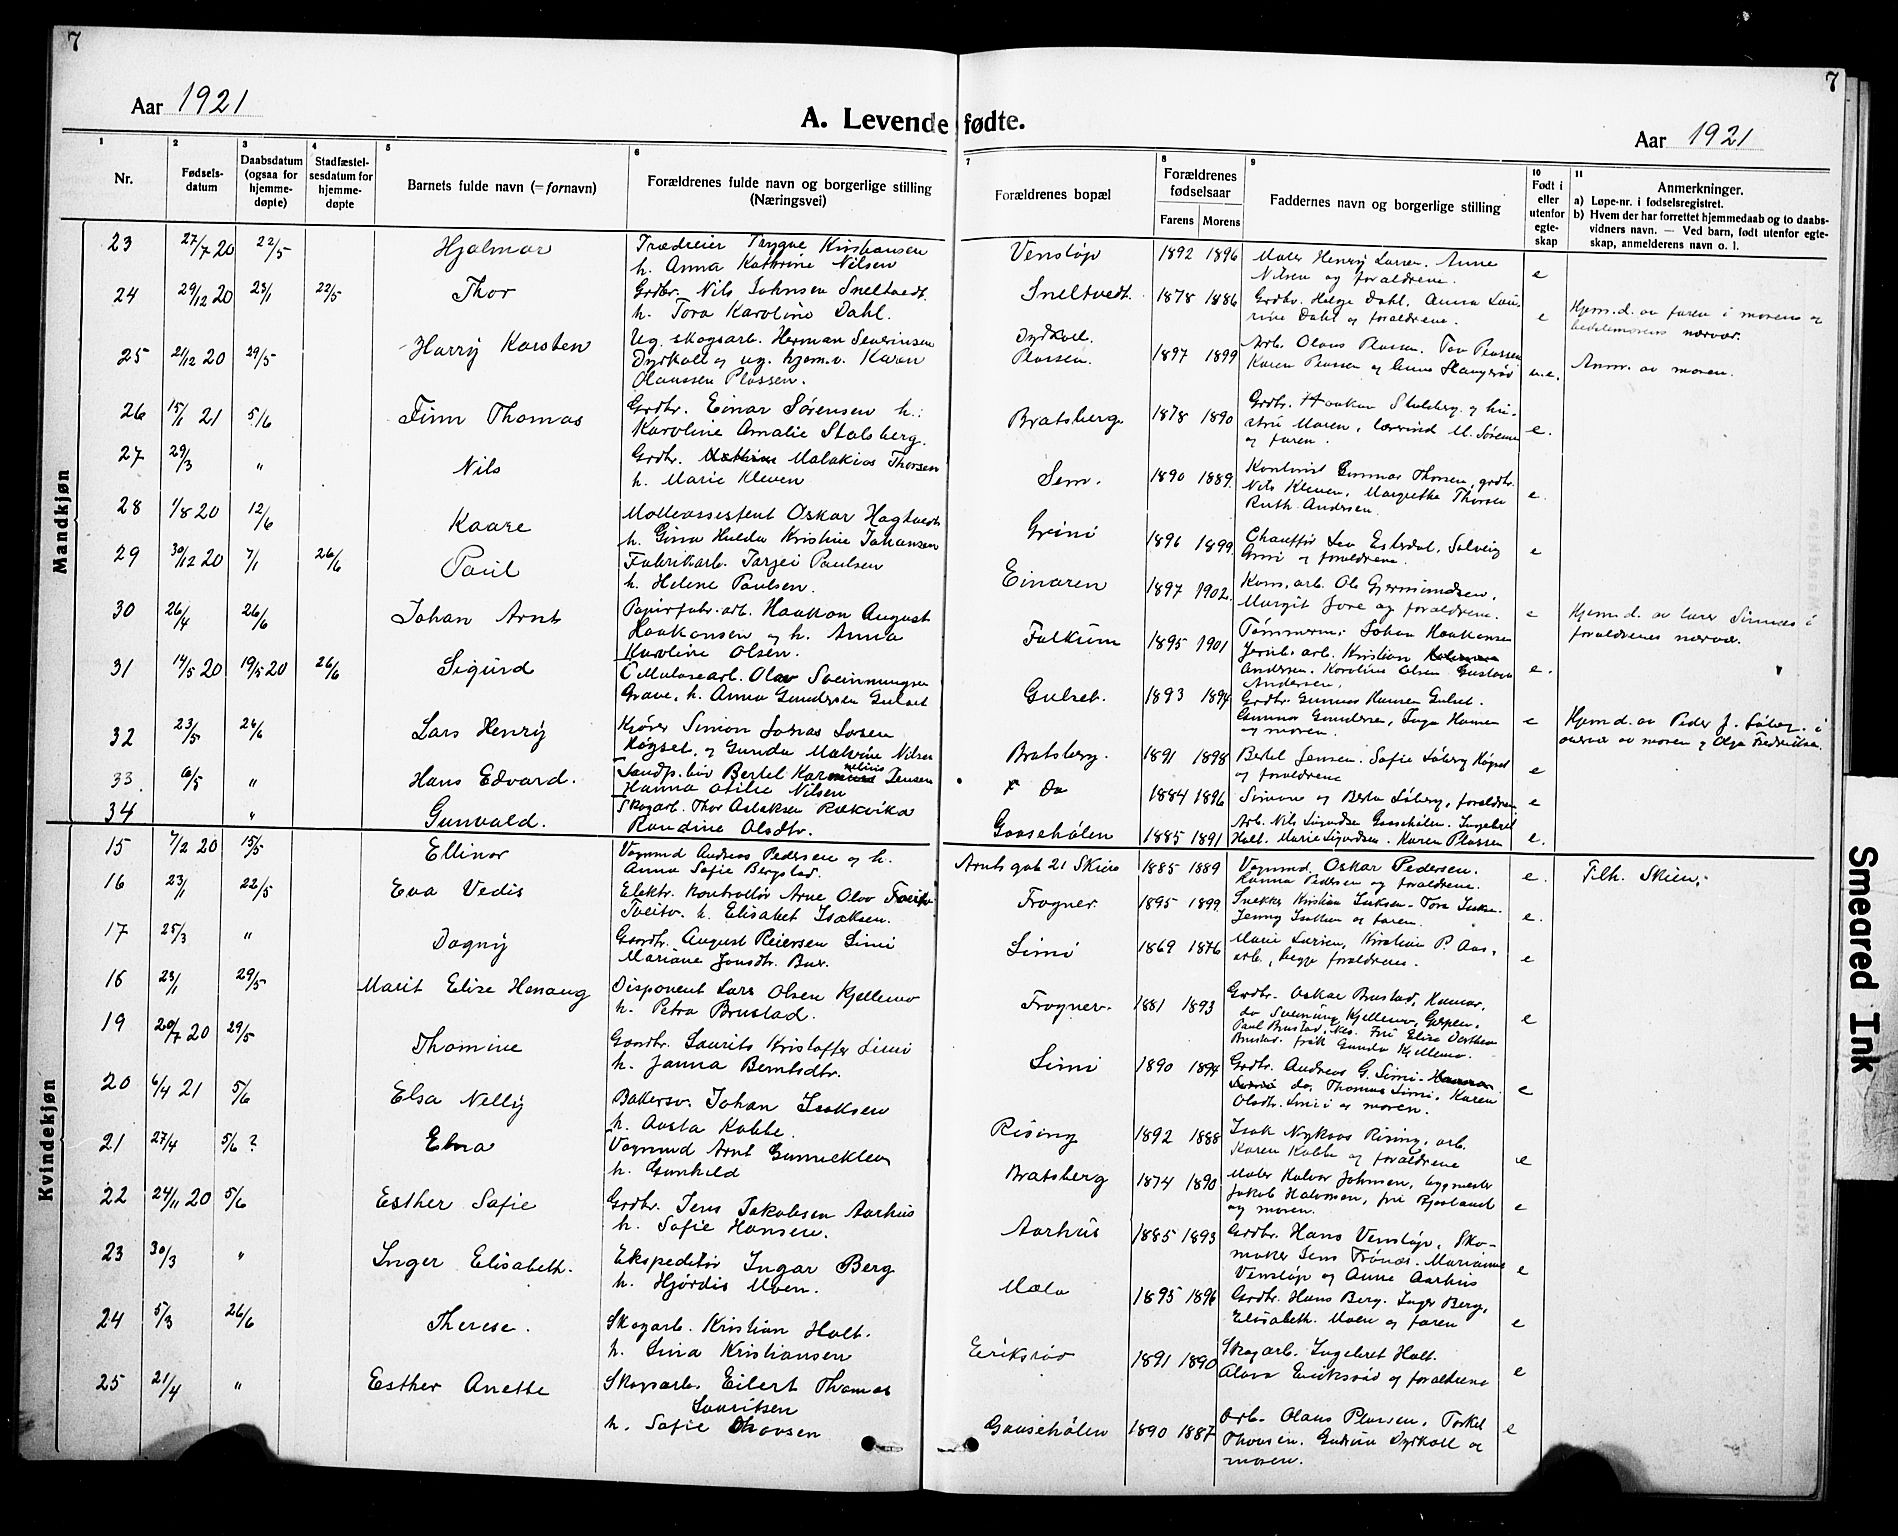 7
7
Aar 1921
A. Levende fødte.
Aar 1921
1
2
3
4
5
6
7
8
9
10
11
Nr.
Fødsels-
datum
Daabsdatum
(ogsaa for
hjemme-
døpte)
Stadfæstel-
sesdatum for
hjemme-
døpte
Barnets fulde navn (= fornavn)
Forældrenes fulde navn og borgerlige stilling
(Næringsvei)
Forældrenes bopæl
Forældrenes
fødselsaar
Farens Morens
Faddernes navn og borgerlige stilling
Født i
eller
utenfor
egte-
skap
Anmerkninger.
a) Løpe-nr. i fødselsregistret.
b) Hvem der har forrettet hjemmedaab og to daabs-
vidners navn. — Ved barn, født utenfor egte-
skap, anmelderens navn o. l.
Mandkjøn
23 27/7 20 22/5 Hjalmar
Trygve Kristiansen
h. Anna Kathrine Nilsen
Venstøp 1892 1896
Maler Henry Larsen. Anne
Nilsen og forældrene. e
24 29/12 20 23/1 22/5 Thor
Grdbr. Nils Johnsen Sneltvedt.
h. Tora Karoline Dahl.
Sneltvedt. 1878 1886
Grdbr. Helge Dahl, Anna Lau-
rine Dahl og forældrene. e
Hjem.d. av faren i morens og
bedstemorens nærvær.
25 21/12 20 29/5 Harry Karsten
Ug. skogsarb. Herman Severinsen
Dydkoll og ug. hjem.v. Karen
Olaussen Plassen.
Dydkoll.
Plassen. 1897 1899
Arb. Olaus Plassen. Tov Plassen
Karen Plassen og Anne u.e.
Anm. av moren.
26 15/1 21 5/6 Finn Thomas
Grdbr. Einar Sørensen h.:
Karoline Amalie Stalsberg.
Bratsberg 1878 1890
Grdbr. Haakon Stalsberg og hu-
stru Maren, M. Sørensen
og faren. e.
27 29/3 " Nils
Grdbr. Malakias Thorsen
h. Marie Kleven
Sem. 1890 1889.
Kontorist Gunnar Thorsen, grdbr.
Nils Kleven, Margrethe Thorsen
Ruth Andersen. e.
28 1/8 20 12/6 Kaare
Mølleassistent Oskar Hagtvedt
h. Gina Hulda Kristine Johansen
Grini 1896 1899.
Chauffør Leo Solveig
Grini og forældrene. e
29 30/12 20 7/1 26/6 Paul
Fabrikarb. Tarjei Paulsen
h. Helene Paulsen.
Einaren 1897 1902.
Kom. arb. Ole Gjermundsen,
Margit Jore og forældrene. e
Hjem.d. av lærer Simnes i
forældrenes nærvær.
30 26/4 26/6 Johan Arnt
Papirfabr. arb. Haakon August
Haakonsen og h. Anna
Karoline Olsen.
Falkum 1895 1901
Tømmerm. Johan Haakonsen
arb. Kristian
Andersen. Karoline Olsen Gustava
Andersen. e.
31 14/5 20 19/5 20 26/6 Sigurd
Cellulosearb. Olav Sveinungsen
Grave, h. Anna Gundersen Gulset
Gulset. 1893 1894
Grdbr. Gunnar Hansen Gulset.
Gunnar Gundersen, Inga Hansen
og moren. e
Hjem.d. av Peder J. Løberg i
nærvær av moren og Olga Fredriksen.
32 23/5 26/6 Lars Henry
Kjører Simon Jonas Larsen
Høgset, og Gunda Malvine Nilsen
Bratsberg. 1891 1898
Bertel Jensen. Sofie Løberg Høgset
og forældrene e
33 6/5 " Hans Edvard.
Bertel Jensen
Hanna Otilie Nilsen
Do 1884 1896
Simon og Berta Løberg, forældrene e
34 " Gunvald.
Skogarb. Thor Aslaksen Rækvika
Randine Olsdtr.
Gaasehølen 1885 1891
Arb. Nils Sigurdsen Gaasehølen. Ingebret
Holt. Marie Sigurdsen. Karen Plassen e.
Kvindekjøn
15 7/2 20 15/5 Ellinor
Vognmd Andreas Pedersen og h.
Anna Sofie Bergstad.
Arntsgate 21 Skien 1885 1889
Vognmd. Oskar Pedersen.
Hanna Pedersen og forældrene. e.
Tilh. Skien.
16 23/1 22/5 Eva Vedis
Elektr. kontrollør Arne Olav
Tveito. h. Elisabet Isaksen.
Frogner. 1895 1899
Snekker Kristian Isaksen. Tora
Jenny Isaksen og faren. e.
17 25/3 " Dagny
Gaardbr. August Reiersen Limi
Mariane Jonsdtr. Bur.
Limi 1869 1876
Marie Larsen, Kristian P. Aas,
arb., begge forældrene. e
16 23/1 29/5 Marit Elise Henaug
Disponent Lars Olsen Kjellemo
h. Petra Brustad.
Frogner. 1881 1893
Grdbr. Oskar Brustad, Hamar,
do Sveinung Kjellemo, Gjerpen,
Paul Brustad, Nes. Fru Elise Dorthea
Brustad. frøk Gunda Kjellemo. e
19 20/7 20 29/5 Thomine
Gaardbr. Laurits Kristoffer Limi
h. Janna Berntsdtr.
Limi 1890 1894
Grdbr. Andreas G. Limi.
do. Thomas Limi. Karen
Olsdtr. Limi og moren. e
20 6/4 21 5/6 Elsa Nelly
Bakersv. Johan Isaksen
h. Aasta Kabbe.
Rising 1892 1888
Isak Nykaas Rising, arb.
Karen Kabbe og forældrene e
21 27/4 5/6 ? Elna
Vognmd Arnt Gunnekleiv
h. Gunhild
Bratsberg 1874 1890
Maler Halvor Johnsen, bygmester
Jakob Halvorsen, fru
og moren. e
22 24/11 20 5/6 Esther Sofie
Grdbr. Jens Jakobsen Aarhus
h. Sofie Hansen.
Aarhus 1885 1893
Grdbr. Hans Venstøp, Sko-
maker Jens Trønes. Marianne
Venstøp og Anne Aarhus e
23 30/3 " Inger Elisabeth.
Ekspeditør Ingar Berg
h. Hjørdis Moen.
Mæla 1895 1896
Grdbr. Hans Berg. Inger Berg,
Elisabeth Moen og faren e
24 5/3 26/6 Therese.
Skogarb. Kristian Holt.
h. Lina Kristiansen
Eriksrød 1891 1890
Skogarb. Ingebret Holt.
Alora Eriksrød og forældrene e
25 21/4 " Esther Anette
Skogsarb. Eilert Thomas
Lauritsen
h. Sofie Thovsen
Gaasehølen 1890 1887
Arb. Olaus Plassen, Torkel
Thovsen. Gudrun Dydkoll og
moren. e
Smeared Ink